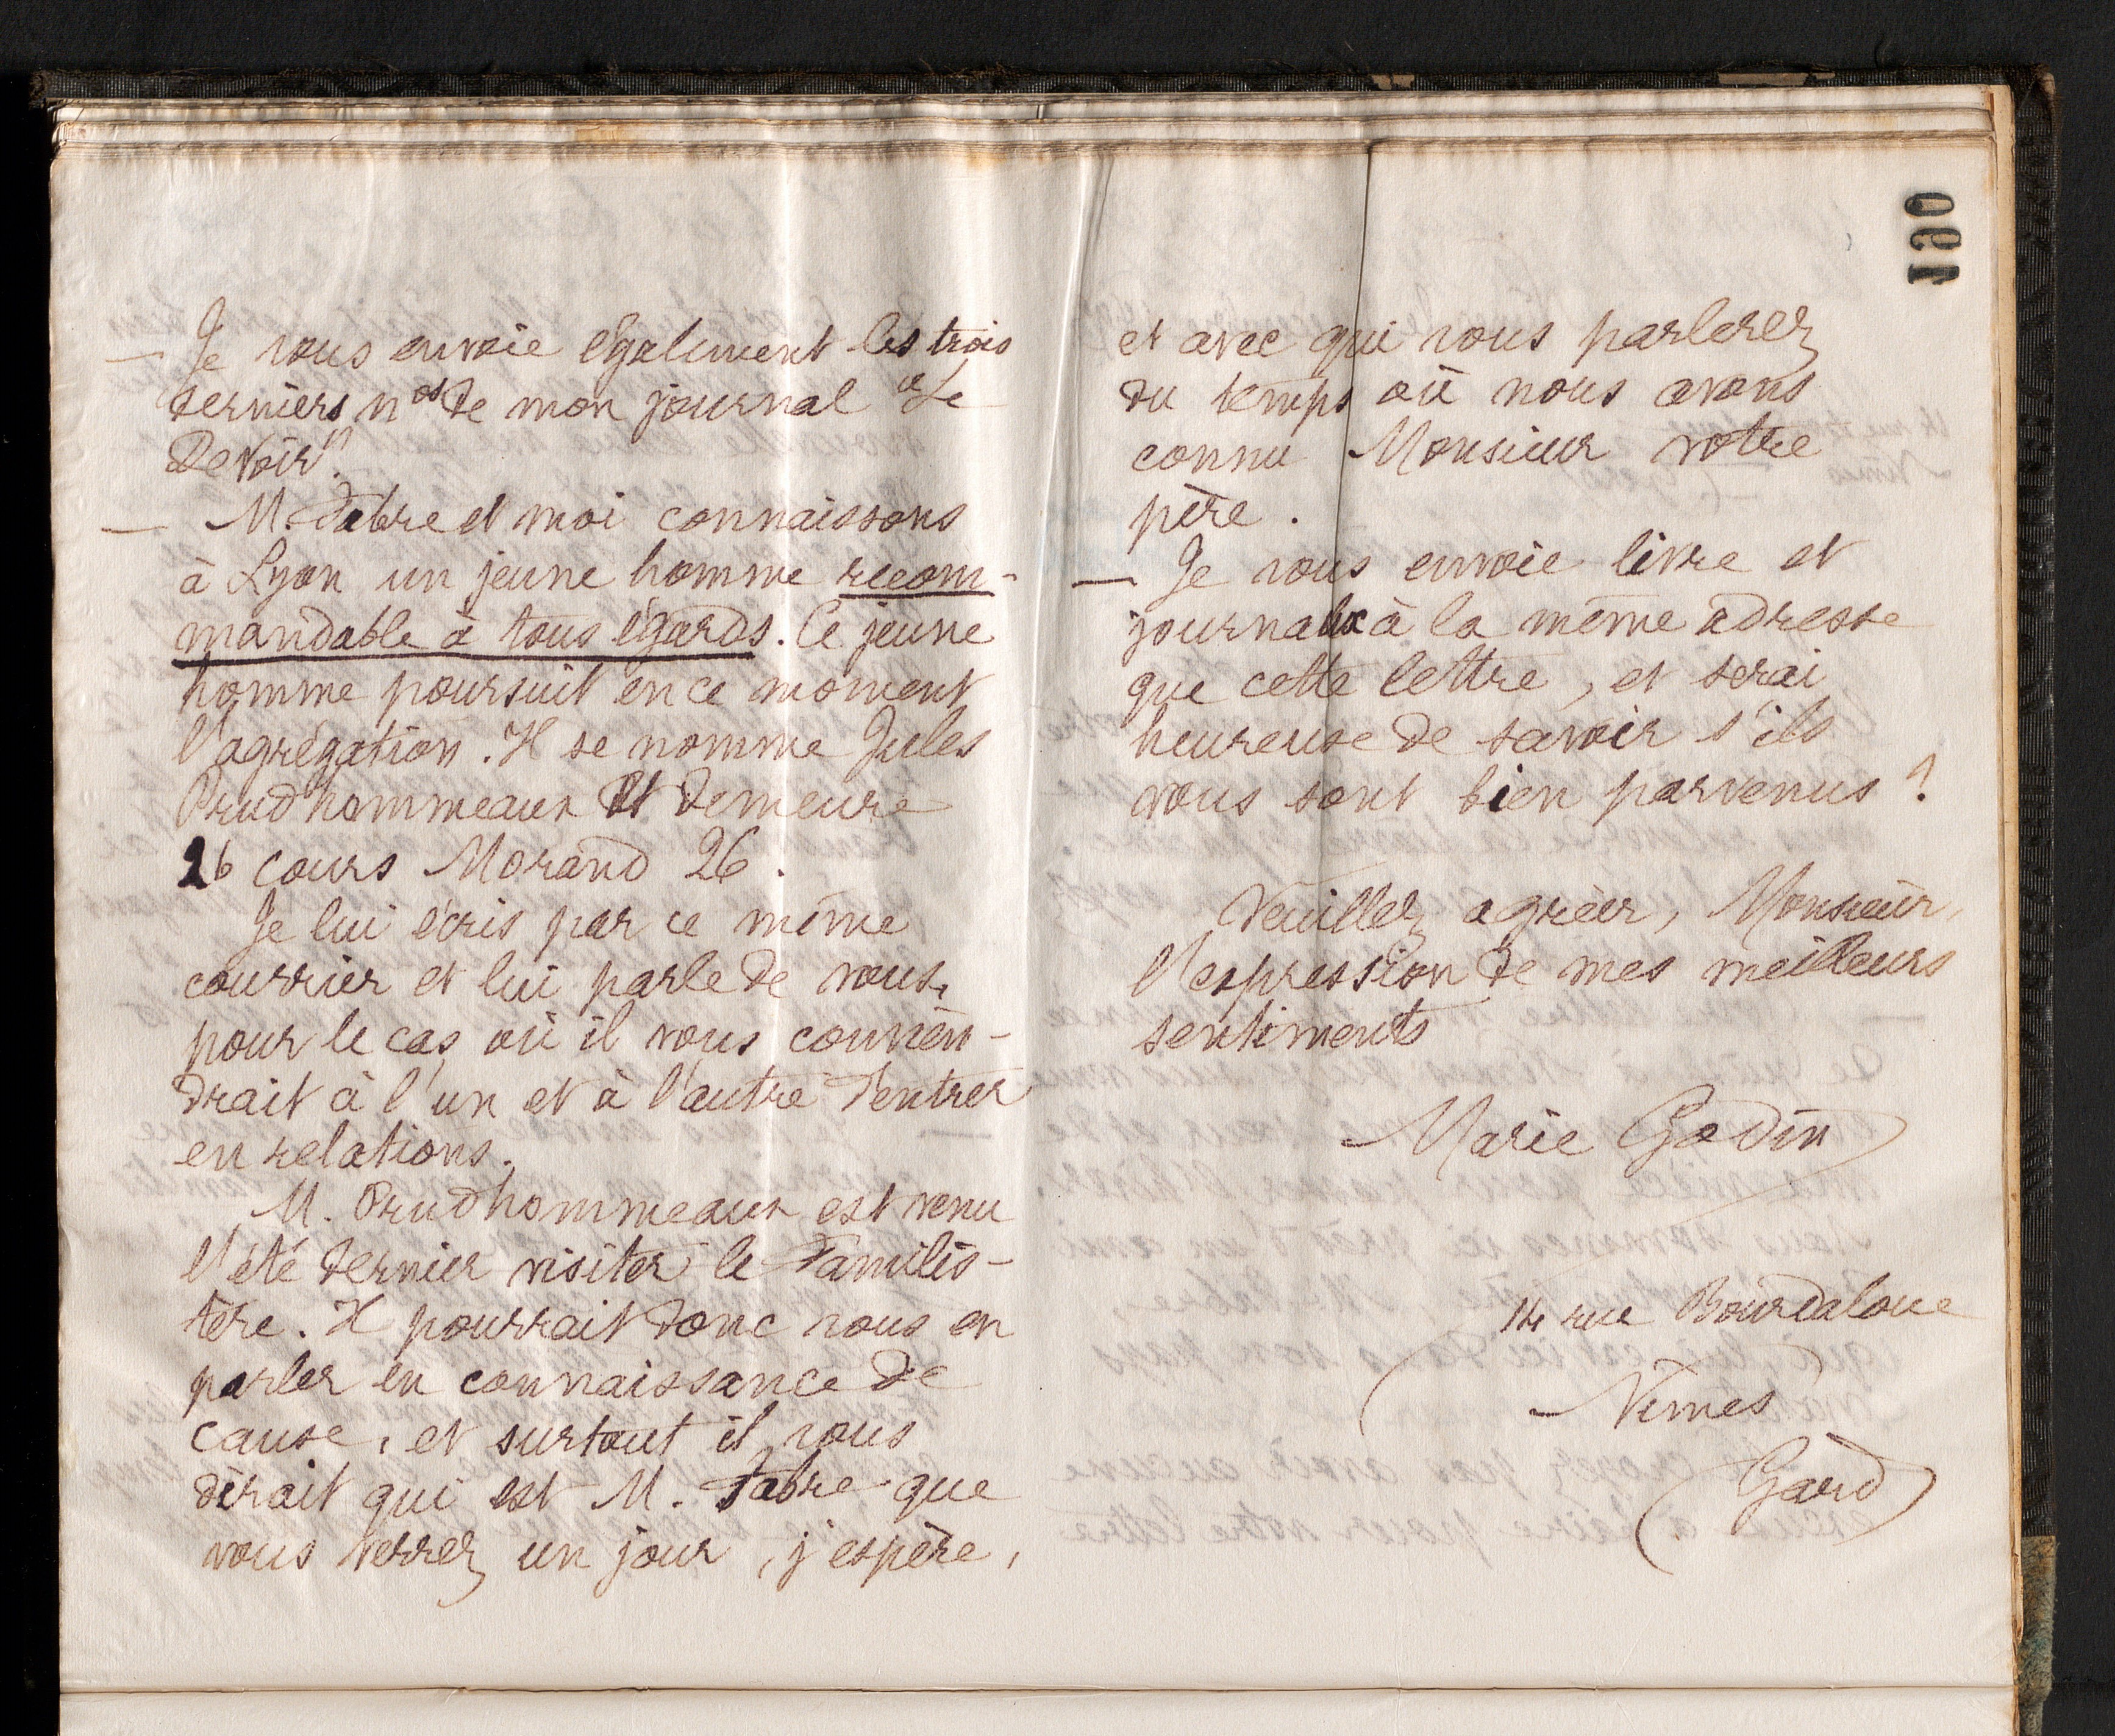 — Je vous envoie également les trois
derniers nos de mon journal "Le
Devoir".
— M. Fabre et moi connaissons
à Lyon un jeune homme recom-
mandable à tous égards. Ce jeune
homme poursuit en ce moment
l'agrégation. Il se nomme Jules
Prudhommeaux et demeure
26 cours Morand 26.
Je lui écris par ce même
courrier et lui parle de vous,
pour le cas où il vous convien-
drait à l'un et à l'autre d'entrer
en relations.
M. Prudhommeaux est venu
l'été dernier visiter le Familis-
tère. Il pourrait donc vous en
parler en connaissance de
cause, et surtout il vous
dirait qui est M. Fabre que
vous verrez un jour, j'espère,
190
et avec qui vous parlerez
du temps où nous avons
connu Monsieur votre
père.
— Je vous envoie livre et
journaux à la même adresse
que cette lettre, et serai
heureuse de savoir s'ils
vous sont bien parvenus ?
Veuillez agréer, Monsieur,
l'expression de mes meilleurs
sentiments
Marie Godin
14 rue Bourdaloue
Nîmes
(Gard)